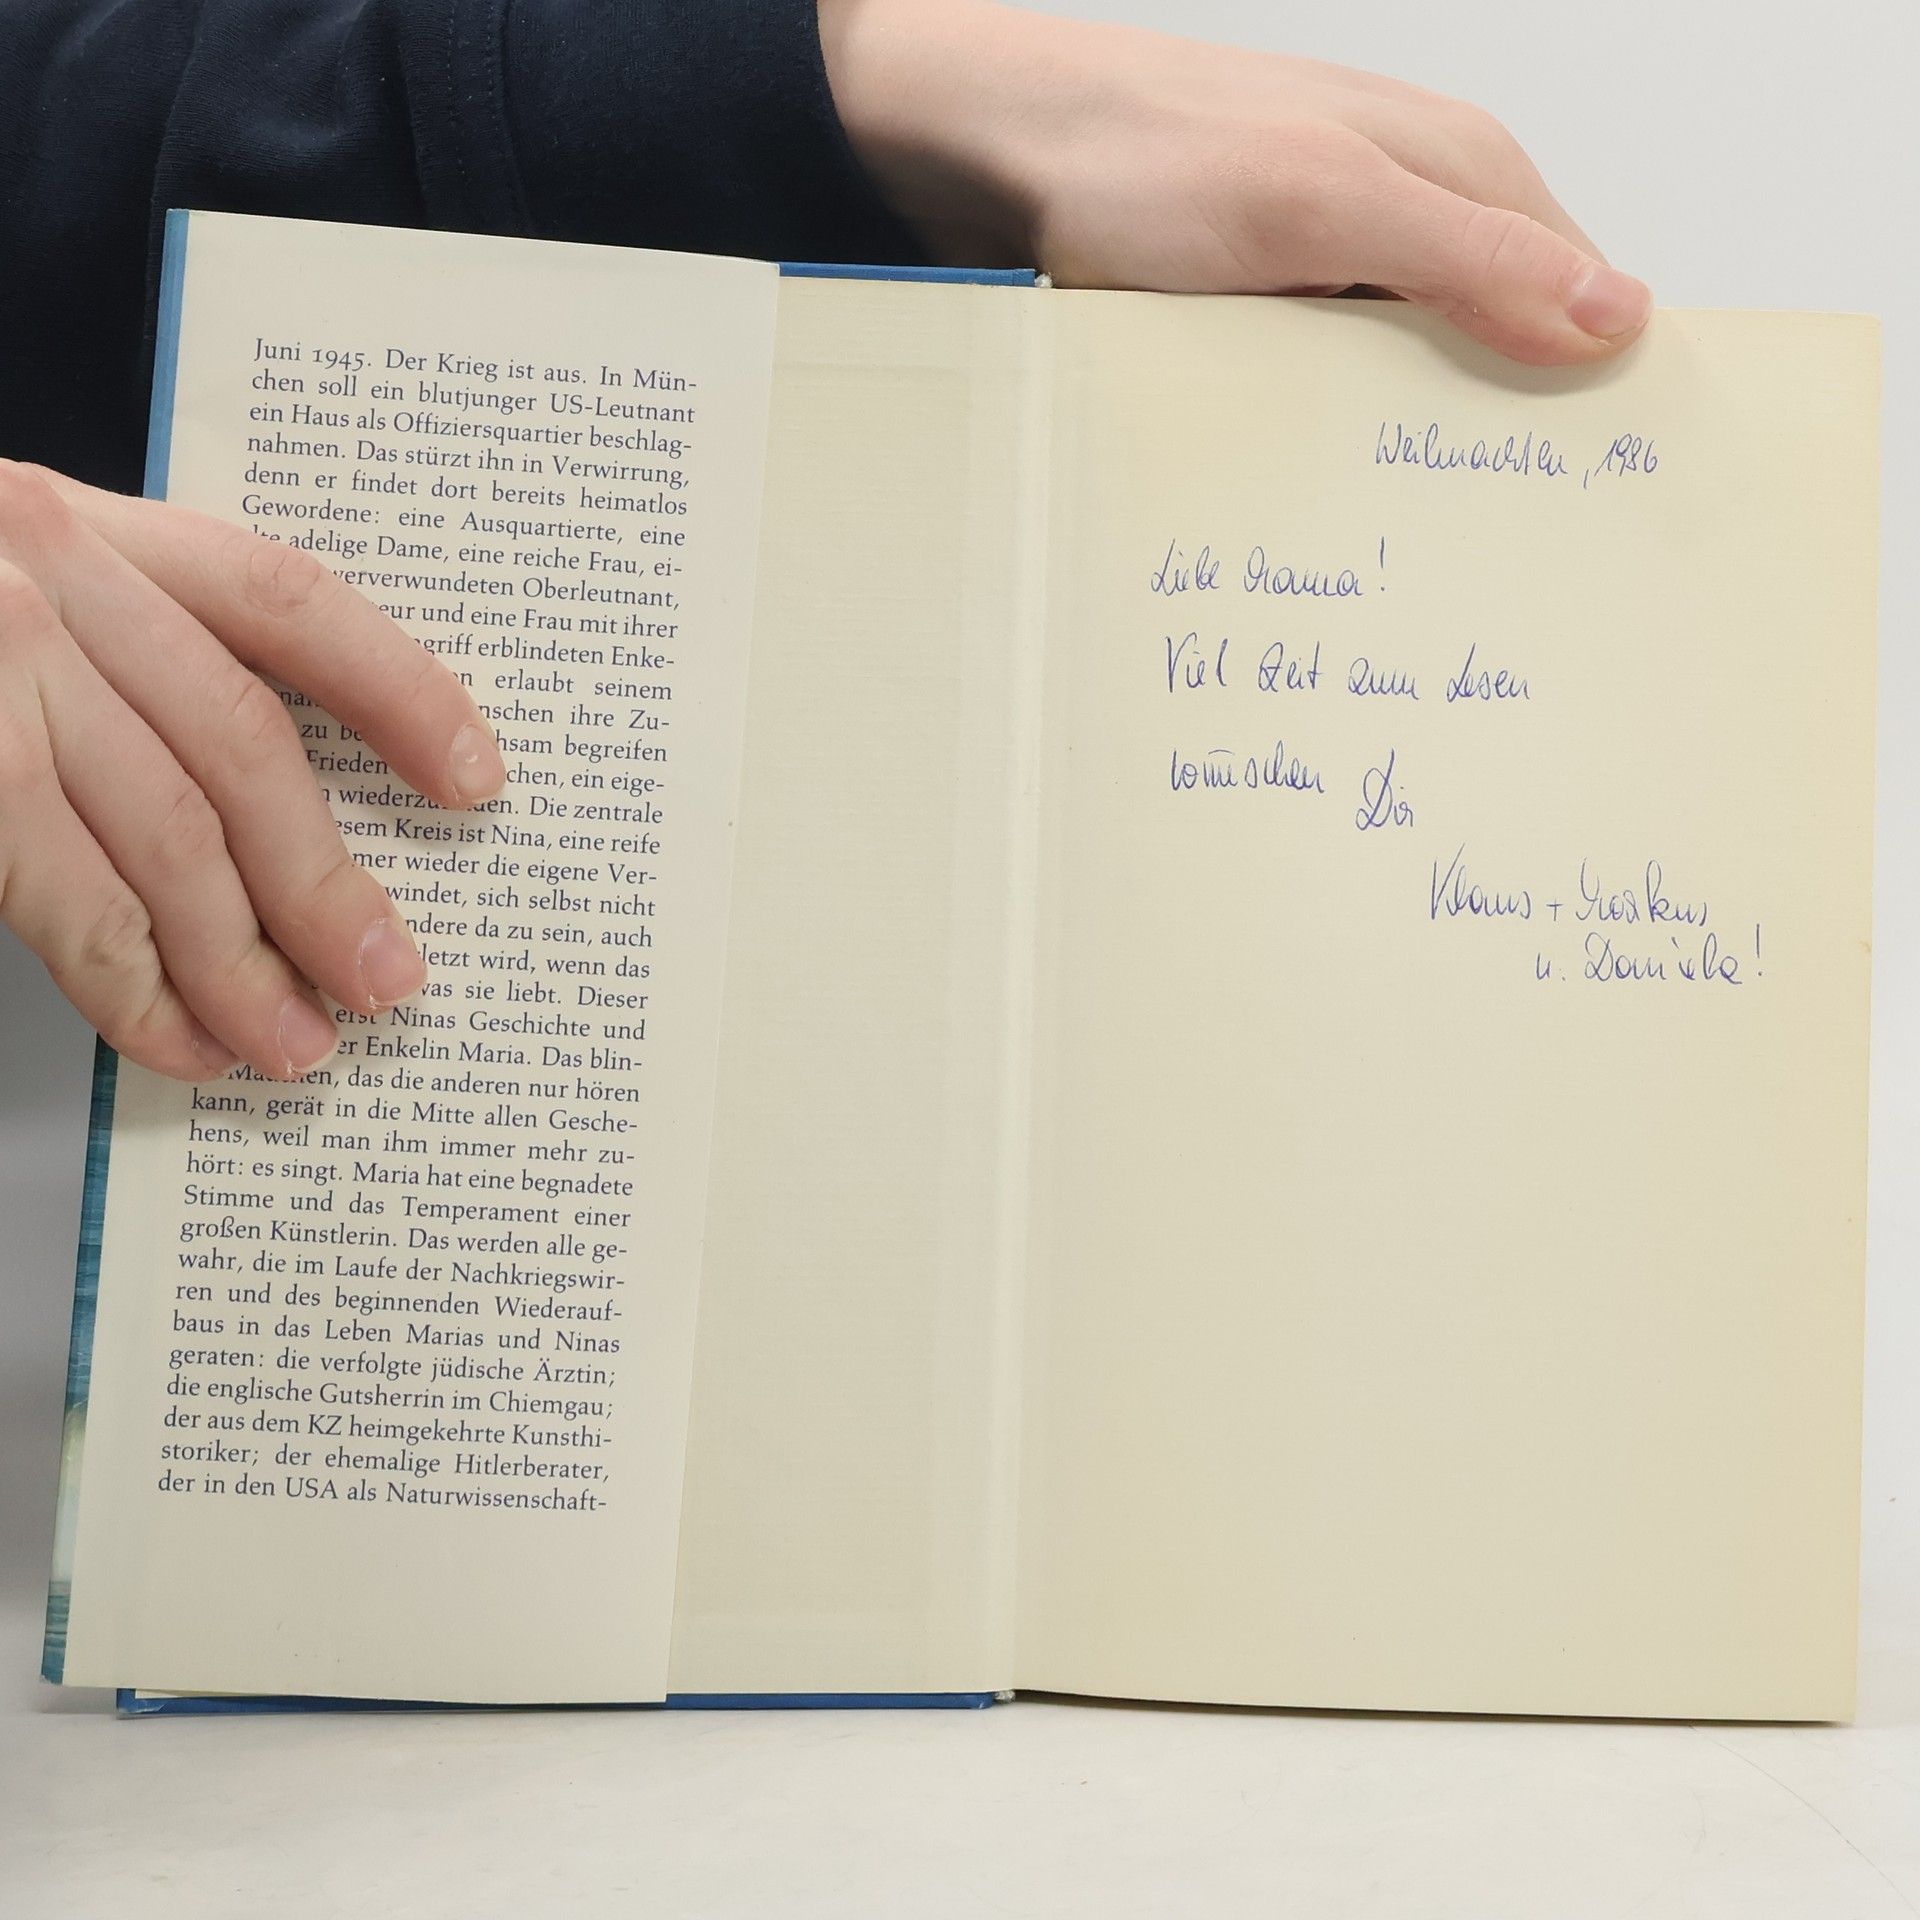 Juni 1945. Der Krieg ist aus. In Mün-
chen soll ein blutjunger US-Leutnant
ein Haus als Offiziersquartier beschlag-
nahmen. Das stürzt ihn in Verwirrung,
denn er findet dort bereits heimatlos
Gewordene: eine Ausquartierte, eine
lte adelige Dame, eine reiche Frau, ei-
werverwundeten Oberleutnant,
eur und eine Frau mit ihrer
griff erblindeten Enke-
n erlaubt seinem
nschen ihre Zu-
zu be hsam begreifen
Frieden chen, ein eige-
n wiederzu den. Die zentrale
esem Kreis ist Nina, eine reife
mer wieder die eigene Ver-
windet, sich selbst nicht
ndere da zu sein, auch
letzt wird, wenn das
was sie liebt. Dieser
erst Ninas Geschichte und
er Enkelin Maria. Das blin-
Mädchen, das die anderen nur hören
kann, gerät in die Mitte allen Gesche-
hens, weil man ihm immer mehr zu-
hört: es singt. Maria hat eine begnadete
Stimme und das Temperament einer
großen Künstlerin. Das werden alle ge-
wahr, die im Laufe der Nachkriegswir-
ren und des beginnenden Wiederauf-
baus in das Leben Marias und Ninas
geraten: die verfolgte jüdische Ärztin;
die englische Gutsherrin im Chiemgau;
der aus dem KZ heimgekehrte Kunsthi-
storiker; der ehemalige Hitlerberater,
der in den USA als Naturwissenschaft-
Weihnachten, 1986
Liebe Mama!
Viel Zeit zum Lesen
wünschen Dir
Klaus + Markus
u. Daniela!